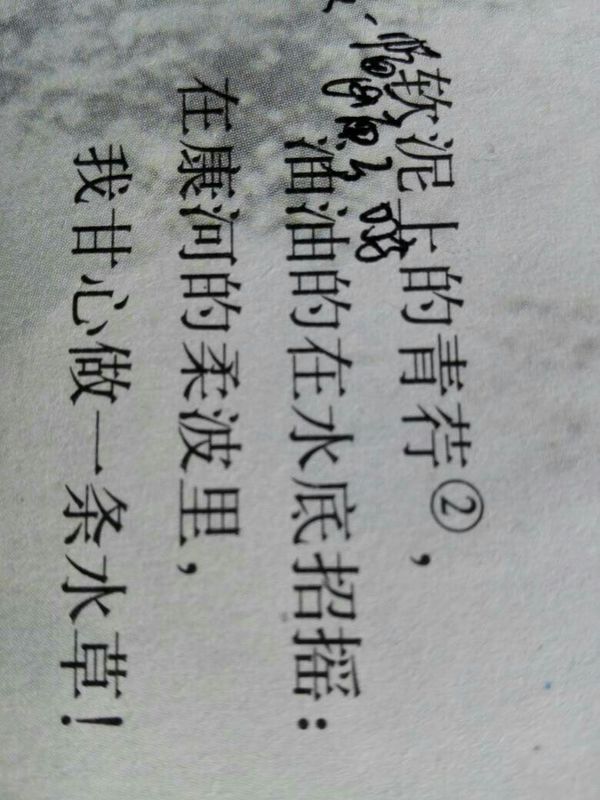 软泥上的青荇②，
油油的在水底招摇：
在康河的柔波里，
我甘心做一条水草！